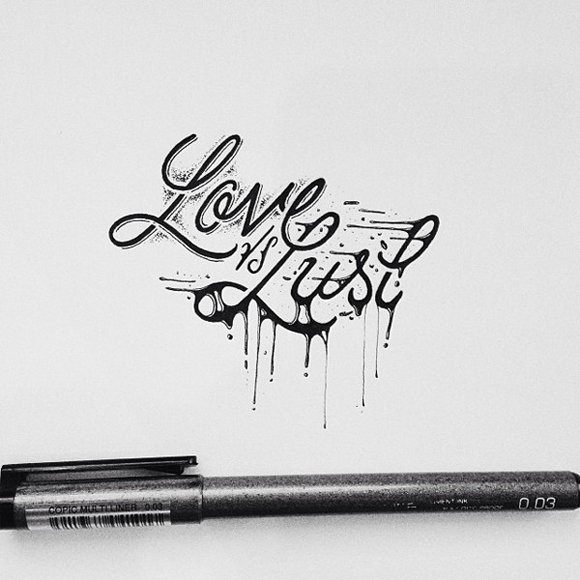 Love
vs
Lust
COPIC MULTI LINER 0.03
0.03